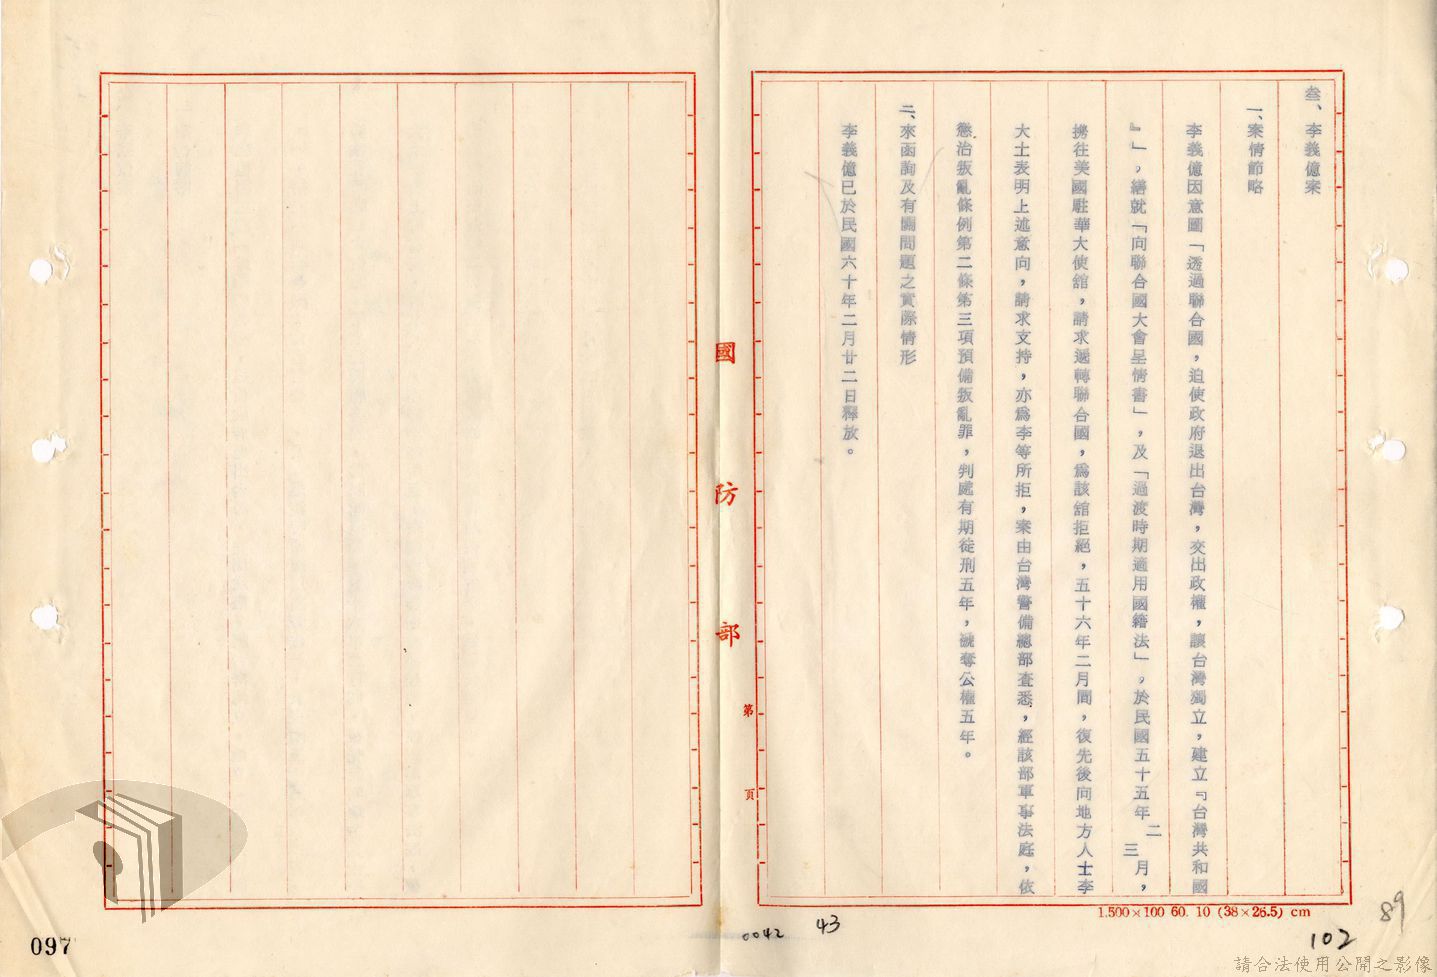 叁、李義億案
一、案情節略
李義億因意圖「透過聯合國，迫使政府退出台灣，交出政權，讓台灣獨立，建立『台灣共和國
』」，繕就「向聯合國大會呈情書」，及「過渡時期適用國籍法」，於民國五十五年二三月，
携往美國駐華大使舘，請求遞轉聯合國，爲該舘拒絕，五十六年二月間，復先後向地方人士李
大士表明上述意向，請求支持，亦爲李等所拒，案由台灣警備總部查悉，經該部軍事法庭，依
懲治叛亂條例第二條第三項預備叛亂罪，判處有期徒刑五年，褫奪公權五年。
二、來函詢及有關問題之實際情形
李義億已於民國六十年二月廿二日釋放。
國防部
第 頁
1.500×100 60. 10 (38×26.5) cm
89
102
43
0042
097
請合法使用公開之影像